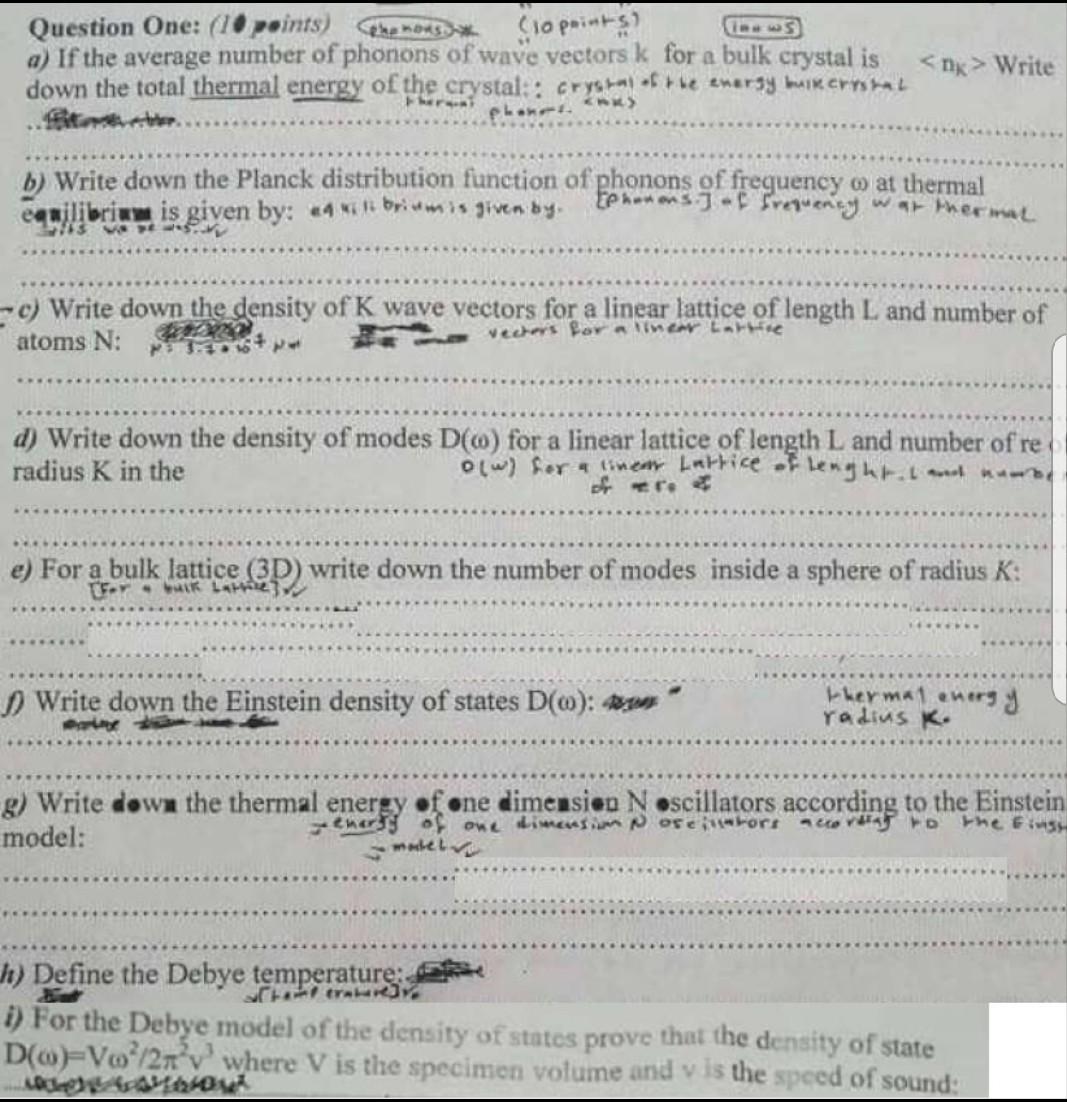 Question One: (10 points) phonons (10 points)
a) If the average number of phonons of wave vectors k for a bulk crystal is <nK> Write
down the total thermal energy of the crystal:: crystal of the energy bulk crystal
thermal phonons. <nk>
b) Write down the Planck distribution function of phonons of frequency ω at thermal
equilibrium is given by: equilibrium is given by. [phonons.] of frequency w at thermal
c) Write down the density of K wave vectors for a linear lattice of length L and number of
atoms N: vectors for a linear Lattice
d) Write down the density of modes D(ω) for a linear lattice of length L and number of re
radius K in the D(w) for a linear Lattice of lenght.L and numbe
of
e) For a bulk lattice (3D) write down the number of modes inside a sphere of radius K:
[For a bulk Lattice]
f) Write down the Einstein density of states D(ω): thermal energy
radius K.
g) Write down the thermal energy of one dimension N oscillators according to the Einstein
model: energy of one dimension N oscillators according to the Einst
model
h) Define the Debye temperature:
i) For the Debye model of the density of states prove that the density of state
D(ω)=Vω²/2π²v³ where V is the specimen volume and v is the speed of sound: